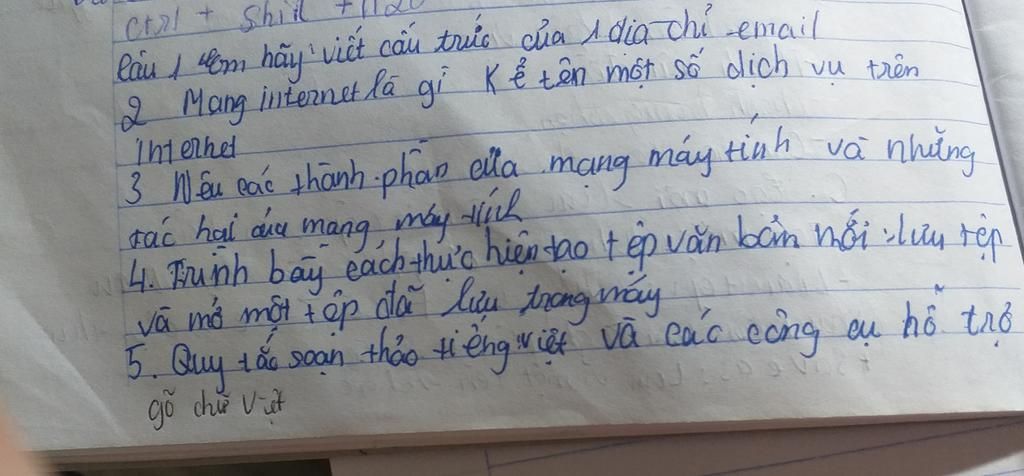 Ctrl + Shift +
Câu 1 em hãy viết cấu trúc của 1 địa chỉ email
2 Mạng internet là gì Kể tên một số dịch vụ trên
Internet
3 Nêu các thành phần của mạng máy tính và những
tác hại của mạng máy tính
4. Trình bày cách thực hiện tạo tệp văn bản mới, lưu tệp
và mở một tệp đã lưu trong máy
5. Quy tắc soạn thảo tiếng việt và các công cụ hỗ trợ
gõ chữ Việt